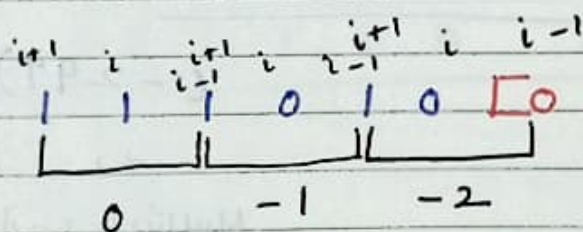 i+1 i i+1 i i+1 i i-1
i-1 i-1
1 1 1 0 1 0 0
0 -1 -2